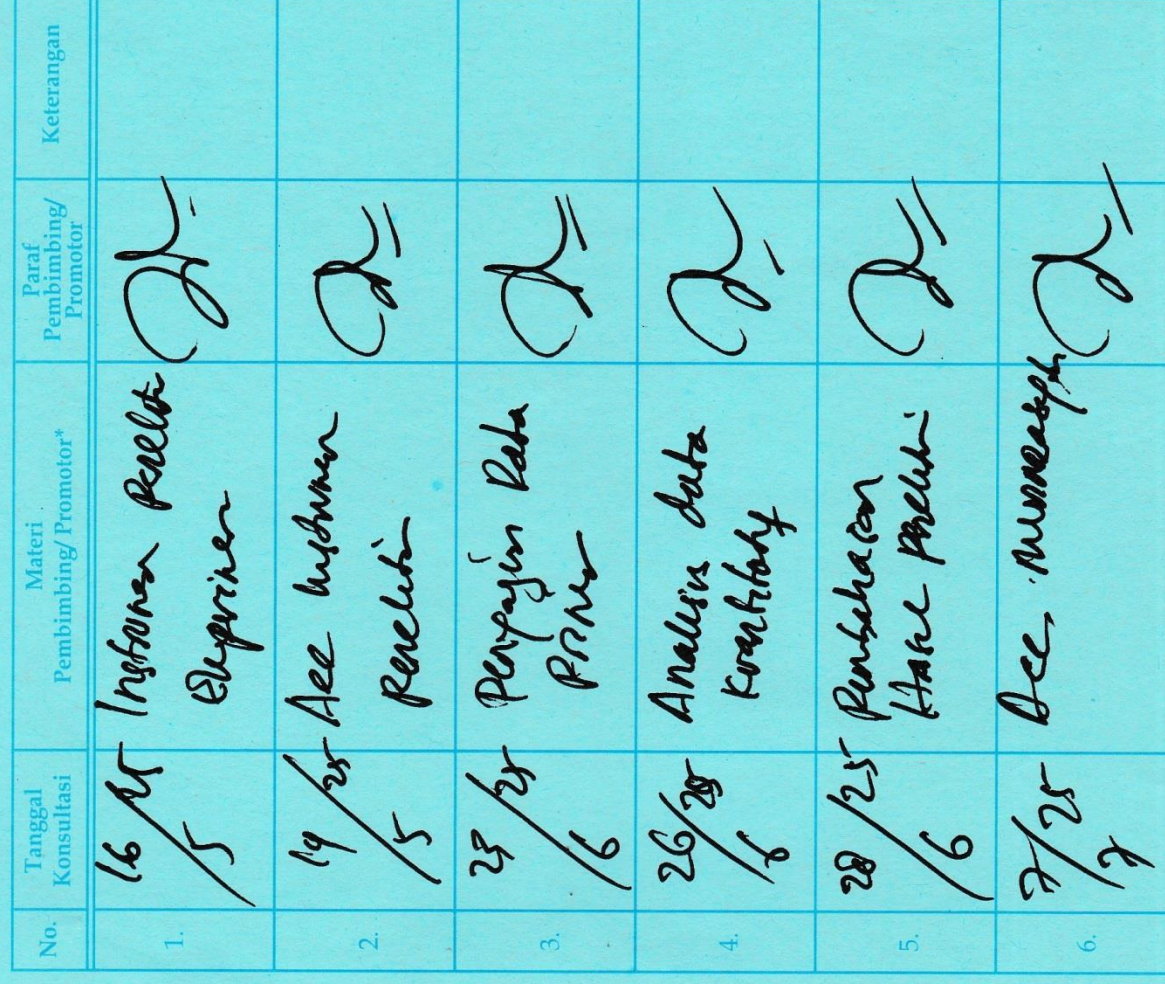 No.
Tanggal
Konsultasi
Materi
Pembimbing/ Promotor*
Paraf
Pembimbing/
Promotor
Keterangan
1.
16/25
5
Instrumen Penelitian
Eksperimen
2.
19/25
5
Acc Instrumen
Penelitian
3.
23/25
6
Penyajian Data
Primer
4.
26/25
6
Analisis data
Kuantitatif
5.
28/25
6
Pembahasan
Hasil Penelitian
6.
7/25
7
Acc. Munaqasyah